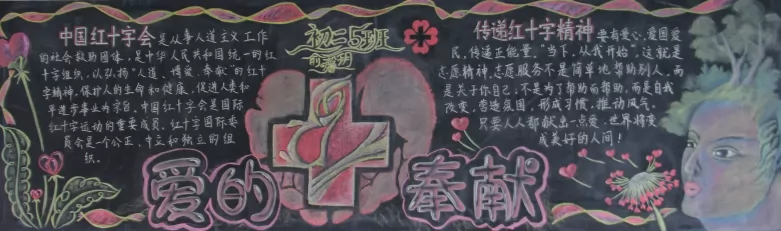 中国红十字会是从事人道主义工作
的社会救助团体,是中华人民共和国统一的红
十字组织,以弘扬“人道、博爱、奉献”的红十
字精神,保护人的生命和健康,促进人类和
平进步事业为宗旨。中国红十字会是国际
红十字运动的重要成员。红十字国际委
员会是一个公正、中立和独立的组
织。
初二5班
传递红十字精神要有爱心,爱国爱
民,传递正能量。“当下,从我开始”,这就是
志愿精神。志愿服务不是简单地帮助别人,而
是关于你自己,不是为了帮助而帮助,而是自我
改变,营造氛围,形成习惯,推动风气。
只要人人都献出一点爱,世界将变
成美好的人间!
爱的奉献